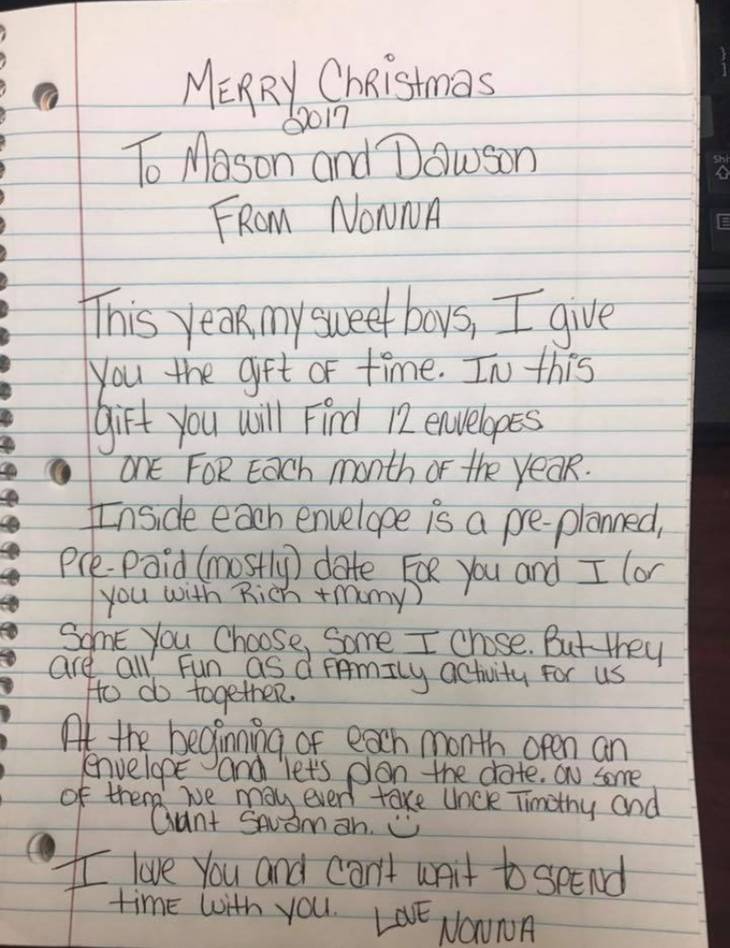 MERRY Christmas
2017
To Mason and Dawson
FROM NONNA
This year, my sweet boys, I give
you the gift of time. In this
gift you will find 12 envelopes
one for each month of the year.
Inside each envelope is a pre-planned,
pre-paid (mostly) date for you and I (or
you with Rich + mumy)
Some you choose, some I chose. But they
are all fun as a family activity for us
to do together.
At the beginning of each month open an
envelope and let's plan the date. On some
of them we may even take Uncle Timothy and
Aunt Savannah. ☺
I love you and can't wait to spend
time with you. Love NONNA